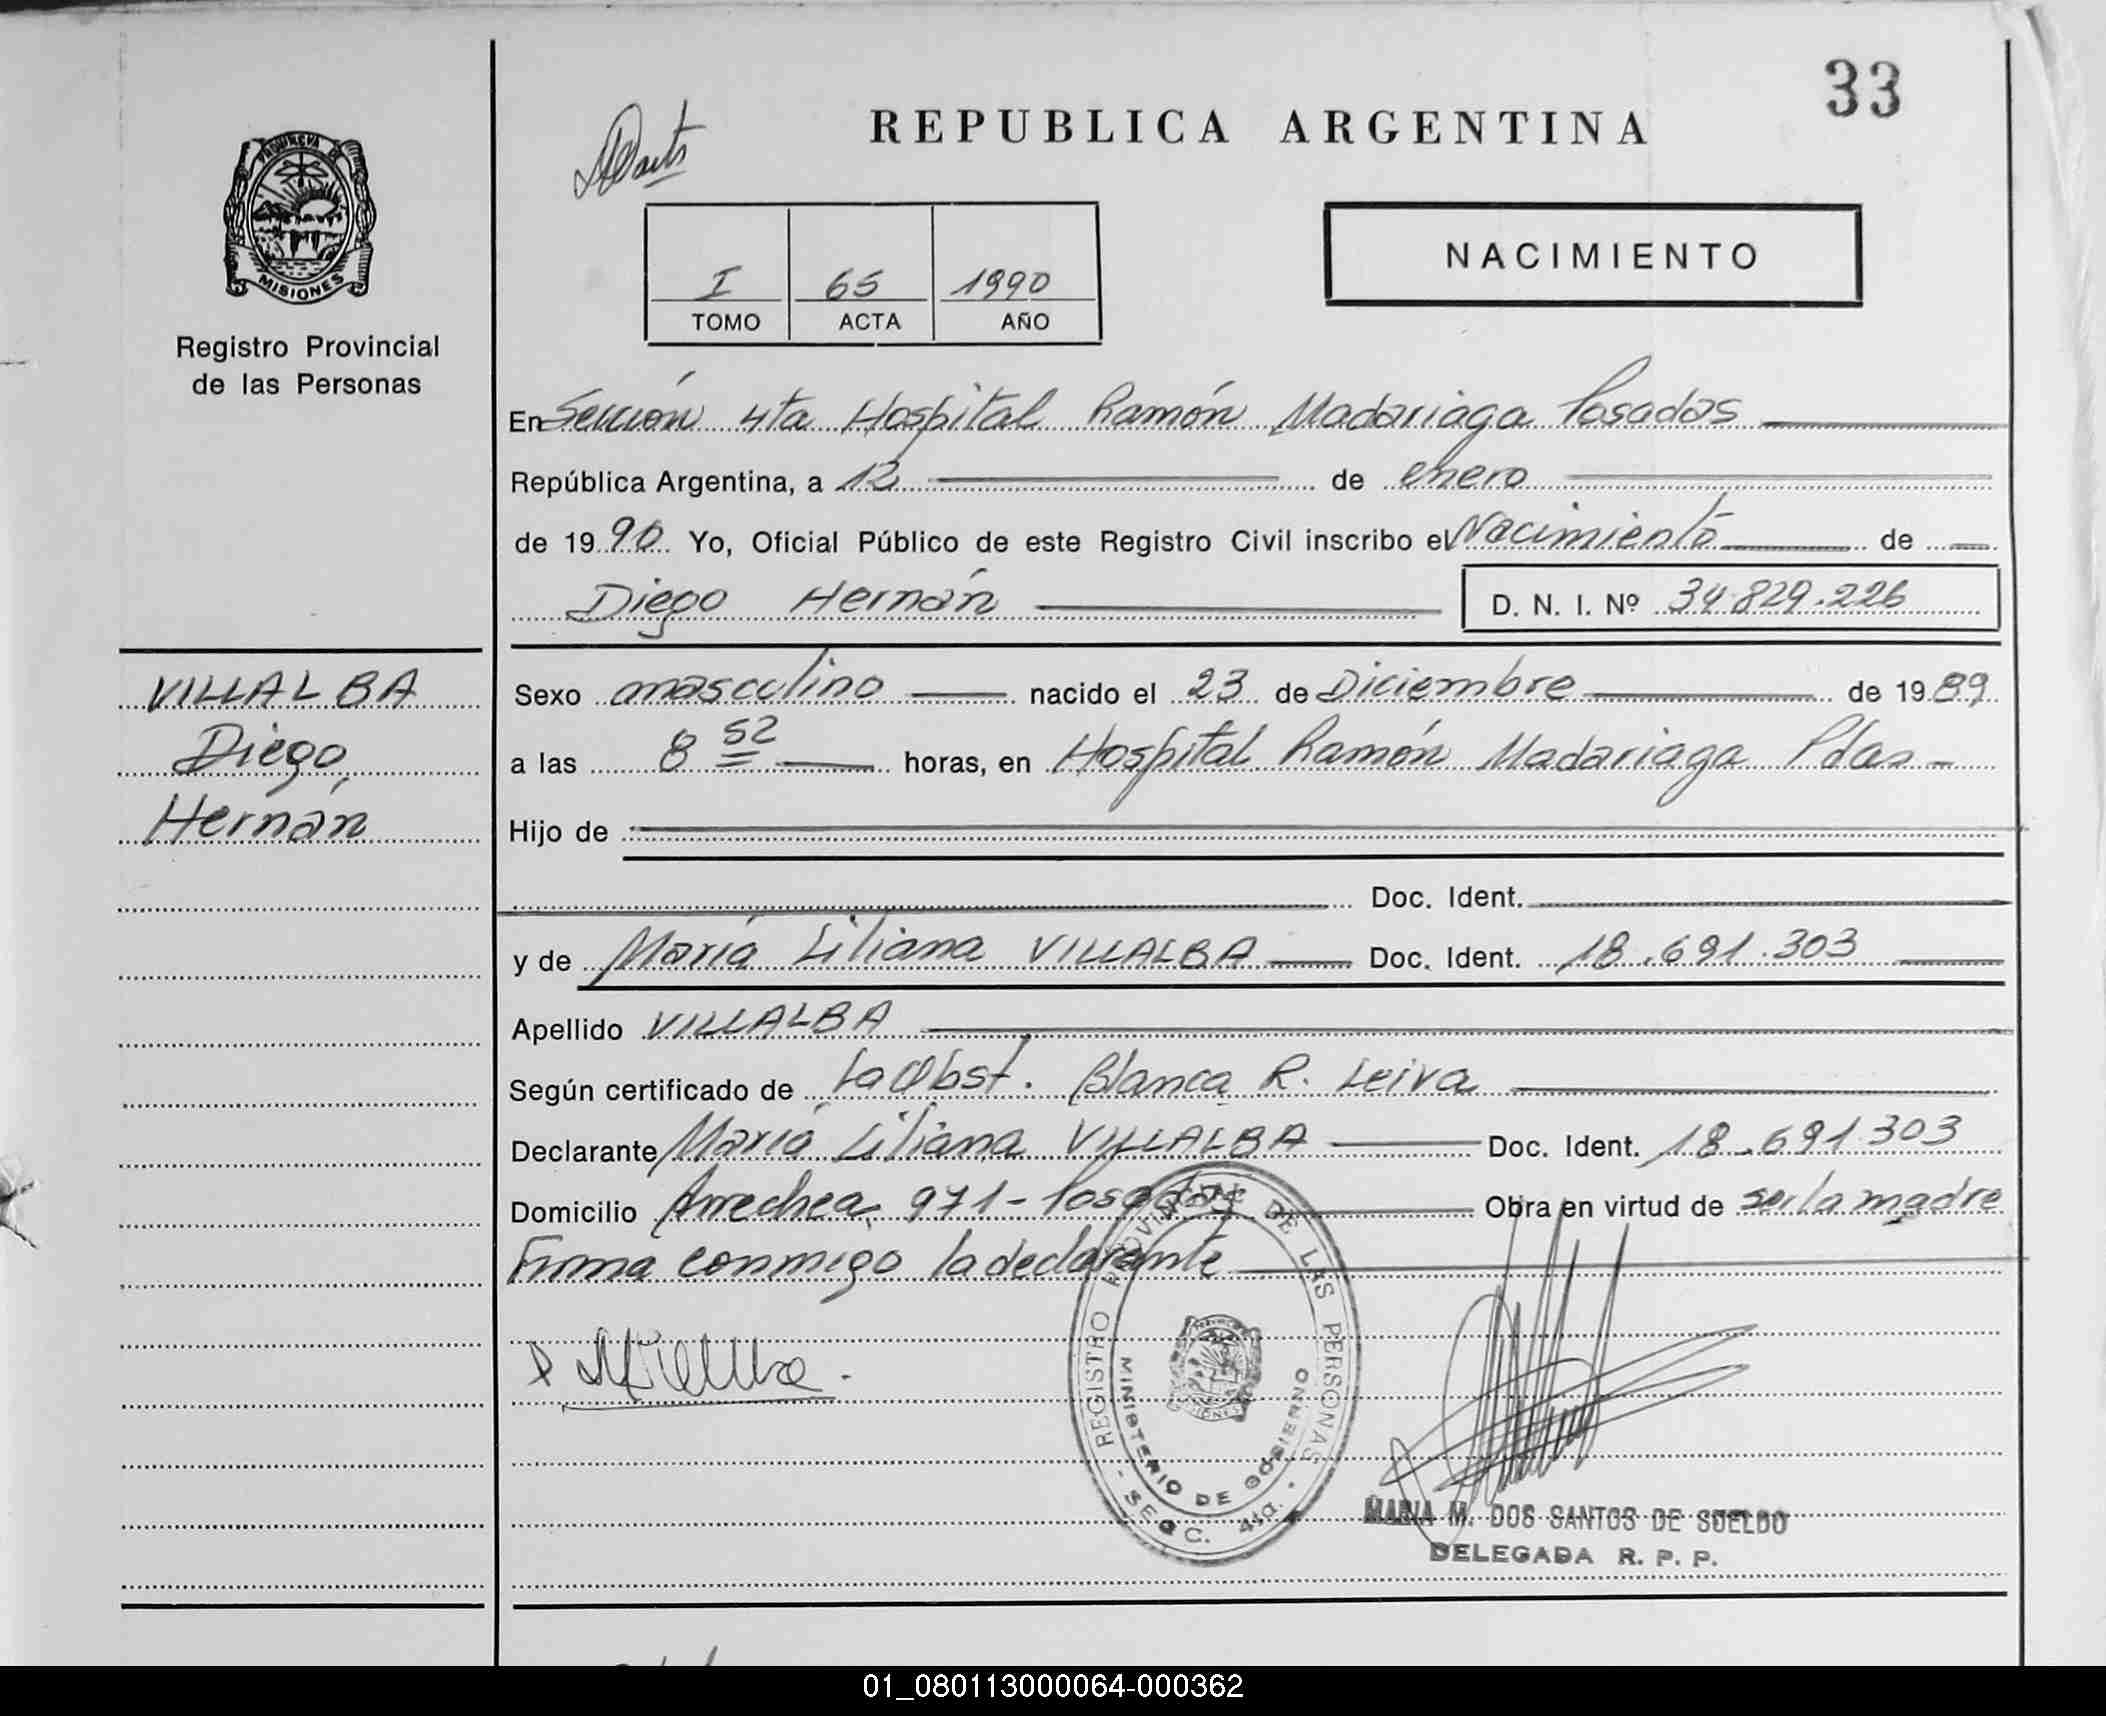 33
REPUBLICA ARGENTINA
NACIMIENTO
I 65 1990
TOMO ACTA AÑO
PROVINCIA DE
MISIONES
Registro Provincial
de las Personas
En Sección 4ta Hospital Ramón Madariaga Posadas
República Argentina, a 12 de enero
de 1990 Yo, Oficial Público de este Registro Civil inscribo el Nacimiento de
Diego Hernán D. N. I. Nº 34.829.226
VILLALBA
Diego
Hernán
Sexo masculino nacido el 23 de Diciembre de 1989
a las 8 52 horas, en Hospital Ramón Madariaga Pdas -
Hijo de
Doc. Ident.
y de María Liliana VILLALBA Doc. Ident. 18.691.303
Apellido VILLALBA
Según certificado de la Obst. Blanca R. Leiva
Declarante María Liliana VILLALBA Doc. Ident. 18.691.303
Domicilio Arrechea 971 - Posadas Obra en virtud de ser la madre
Firma conmigo la declarante
REGISTRO PROVINCIAL DE LAS PERSONAS
MINISTERIO DE GOBIERNO
- SECC. 4ta. -
MARIA M. DOS SANTOS DE SUELDO
DELEGADA R. P. P.
01_080113000064-000362